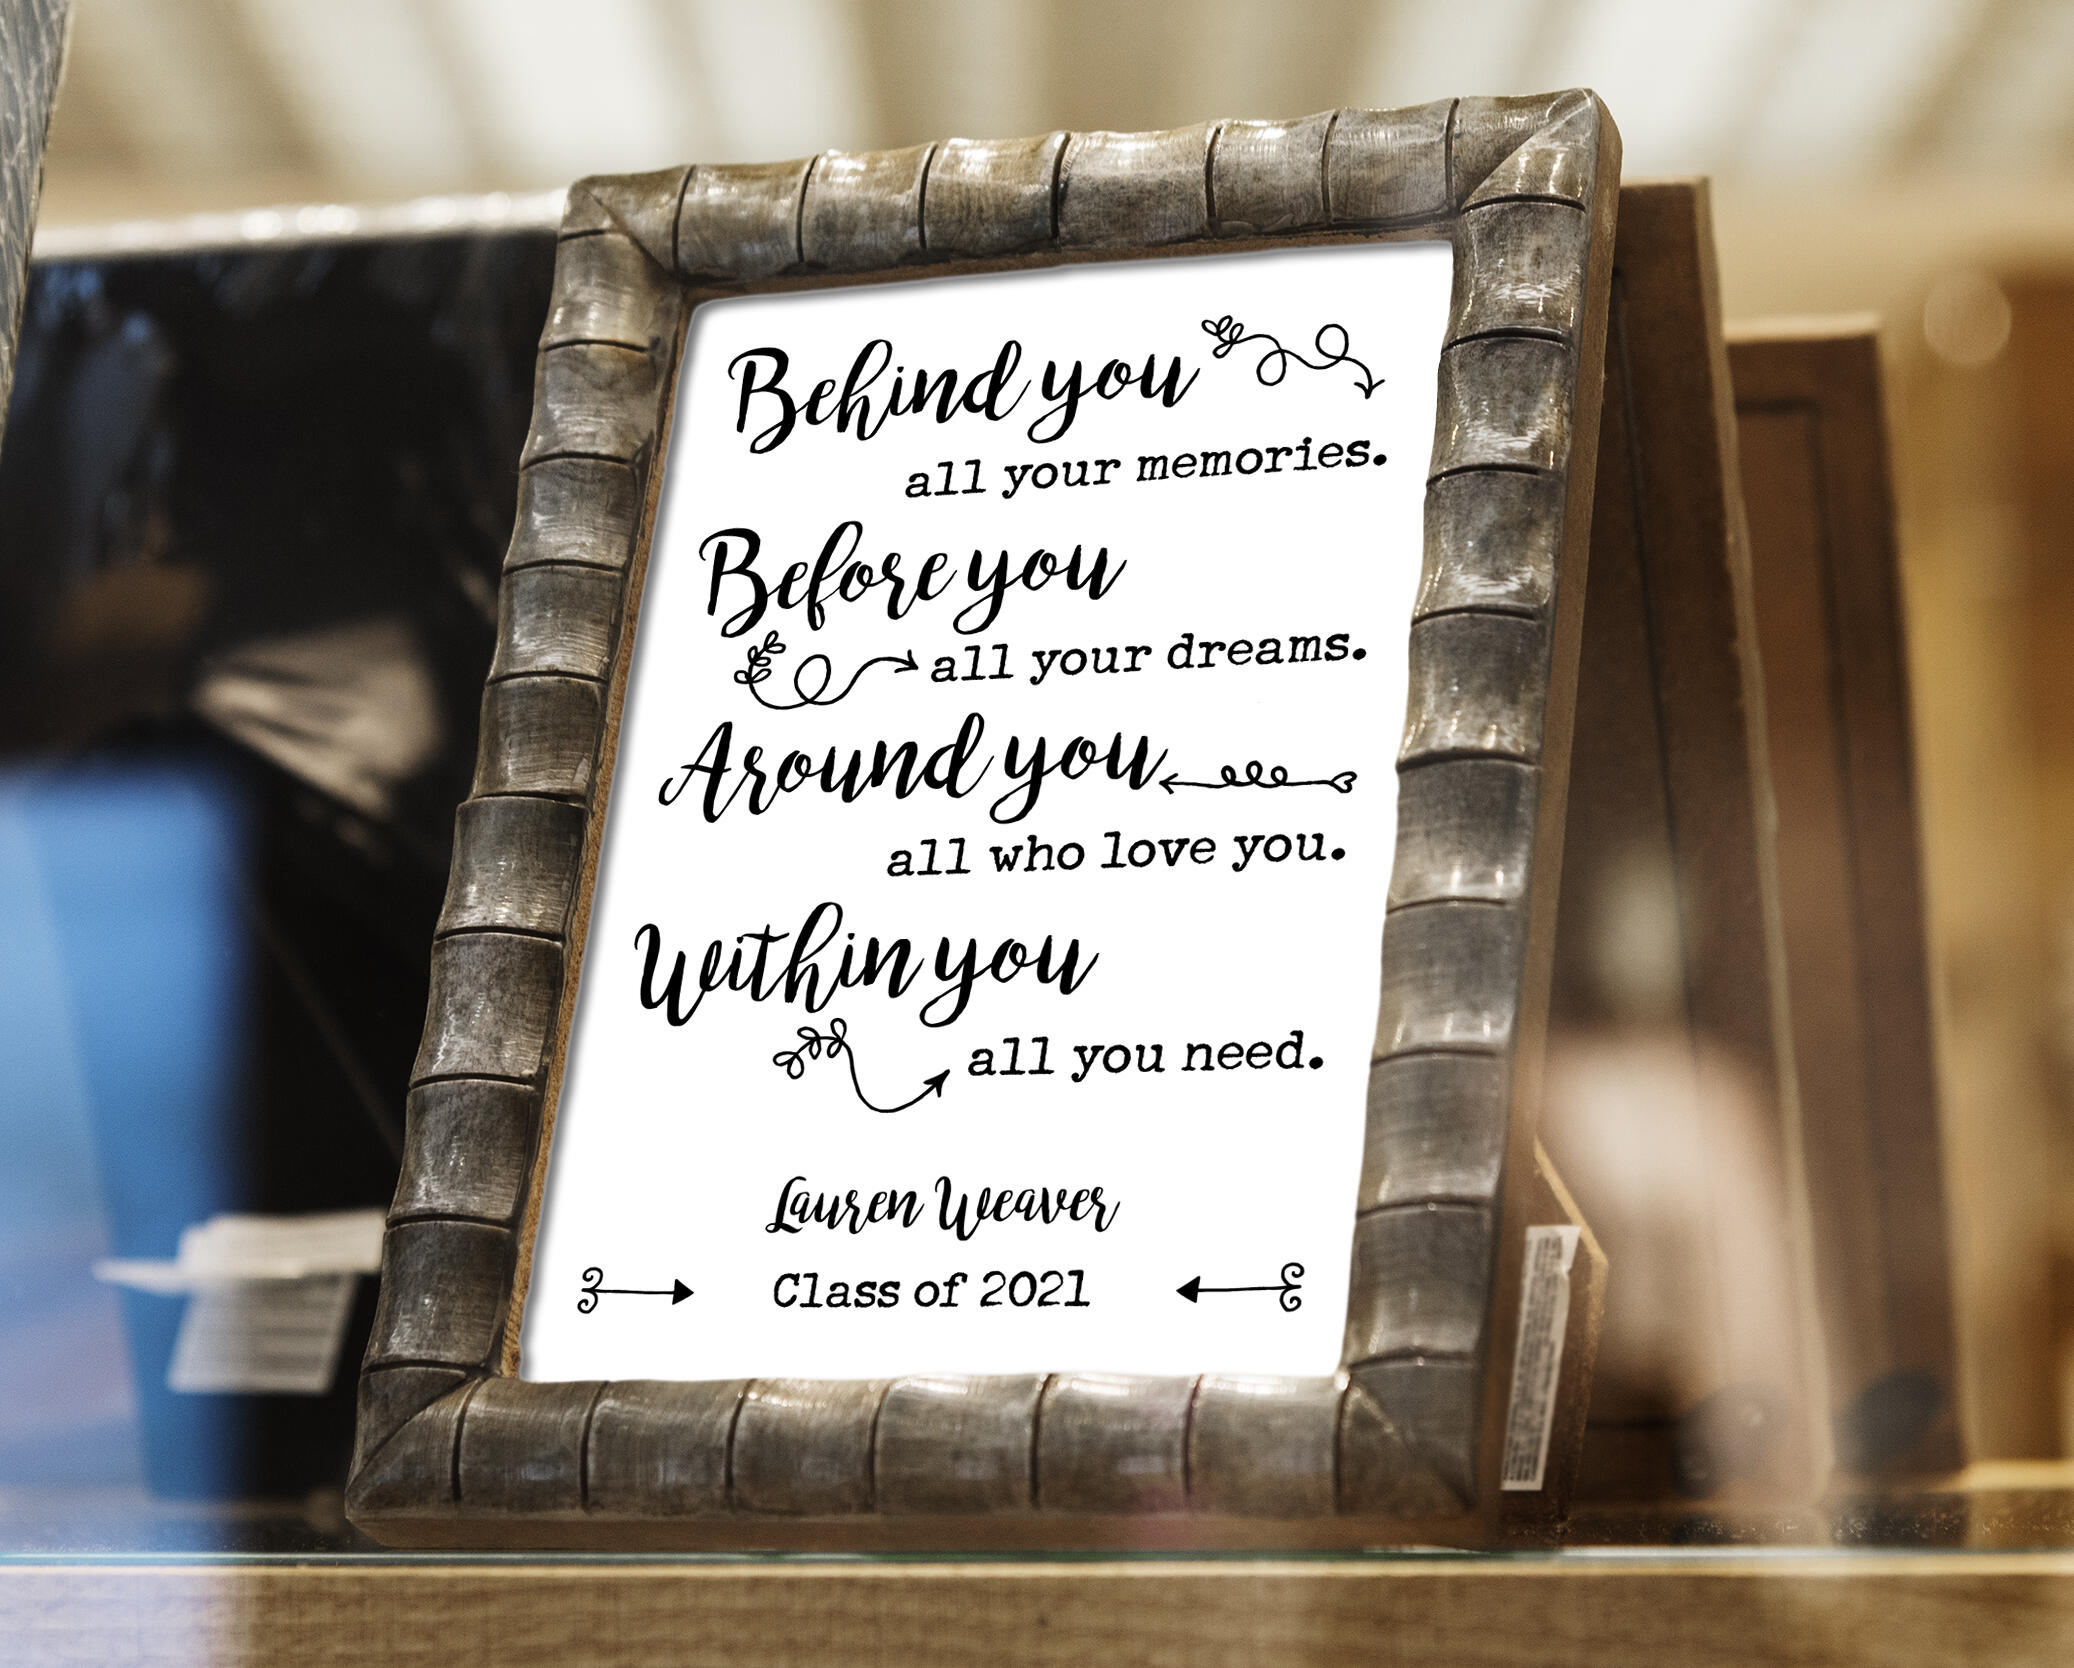 Behind you
all your memories.
Before you
all your dreams.
Around you
all who love you.
Within you
all you need.
Lauren Weaver
Class of 2021